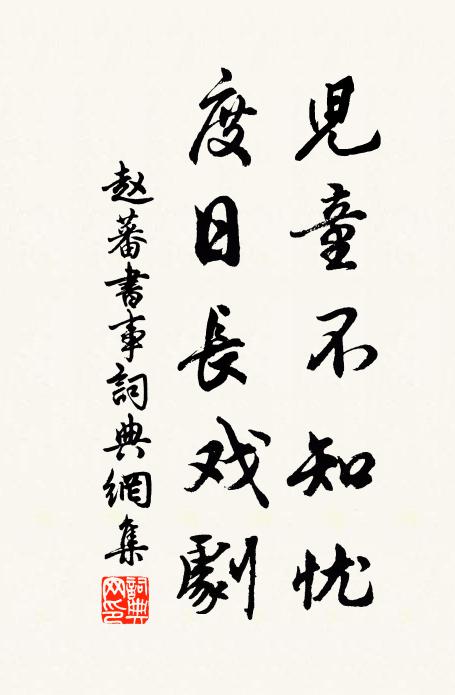 兒童不知忧
度日長戏劇
赵蕃書事詞典網集
詞典网印